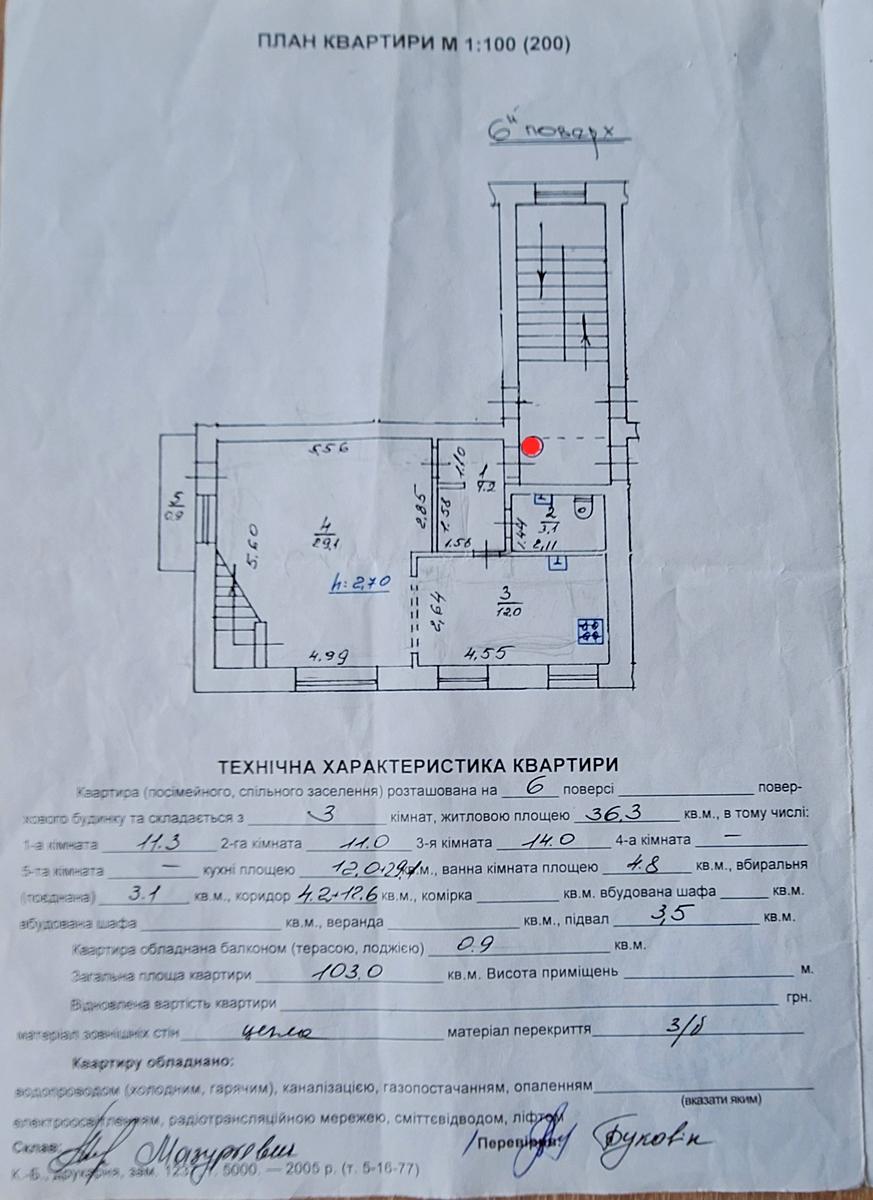 ПЛАН КВАРТИРИ М 1:100 (200)
6й поверх
5.56
1.10
1
4.2
2.85
1.58
1.56
2
3.1
1.44
2,11
0.9
5.60
4
29.1
h: 2,70
2,64
3
12.0
4.99
4.55
ТЕХНІЧНА ХАРАКТЕРИСТИКА КВАРТИРИ
Квартира (посімейного, спільного заселення) розташована на 6 поверсі повер-
хового будинку та складається з 3 кімнат, житловою площею 36,3 кв.м., в тому числі:
1-а кімната 11.3 2-га кімната 11.0 3-я кімната 14.0 4-а кімната —
5-та кімната — кухні площею 12,0+29,1 кв.м., ванна кімната площею 4.8 кв.м., вбиральня
(поєднана) 3.1 кв.м., коридор 4.2+12.6 кв.м., комірка кв.м. вбудована шафа кв.м.
вбудована шафа кв.м., веранда кв.м., підвал 3,5 кв.м.
Квартира обладнана балконом (терасою, лоджією) 0.9 кв.м.
Загальна площа квартири 103,0 кв.м. Висота приміщень м.
Відновлена вартість квартири грн.
матеріал зовнішніх стін цегла матеріал перекриття З/б
Квартиру обладнано:
водопроводом (холодним, гарячим), каналізацією, газопостачанням, опаленням
(вказати яким)
електроосвітленням, радіотрансляційною мережею, сміттєвідводом, ліфтом
Склав: Мазуркевич Перевірив: Буковін
К.-Б., друкарня, зам. 123 5000. — 2005 р. (т. 5-16-77)